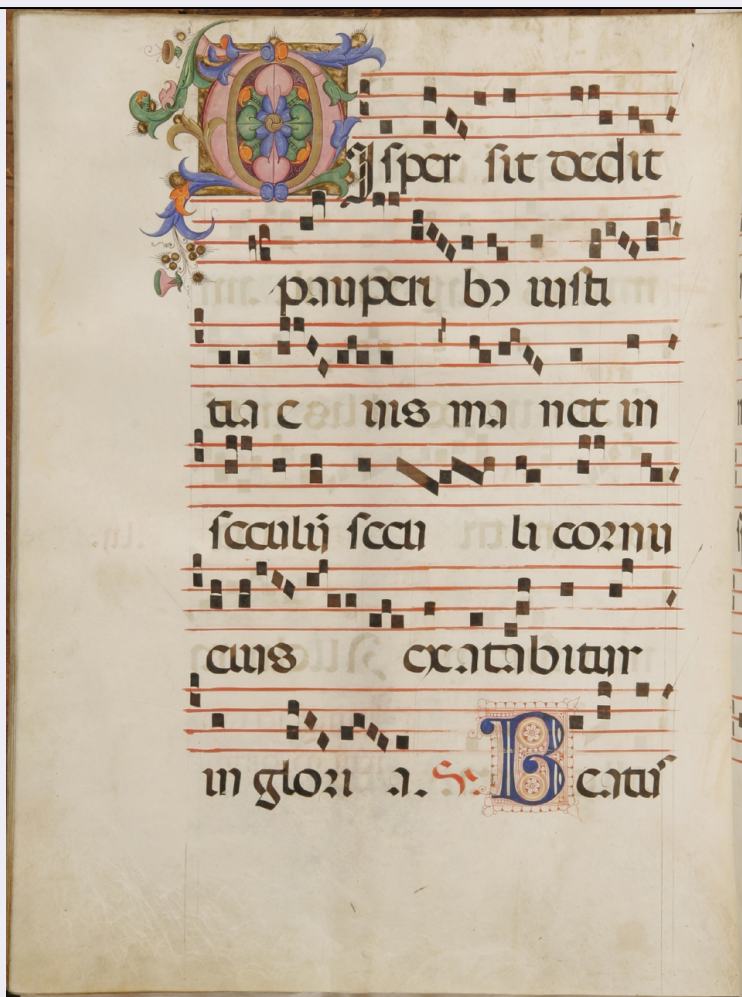 DIsper sit dedit
pauperibꝰ iusti
tia eius manet in
seculū seculi cornu
eius exatabitur
in gloria. Ps. Beatus